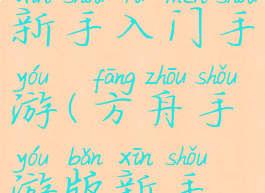 xīn shǒu rù mén shǒu
新手入门手
yóu fāng zhōu shǒu
游(方舟手
yóu bǎn xīn shǒu
游版新手